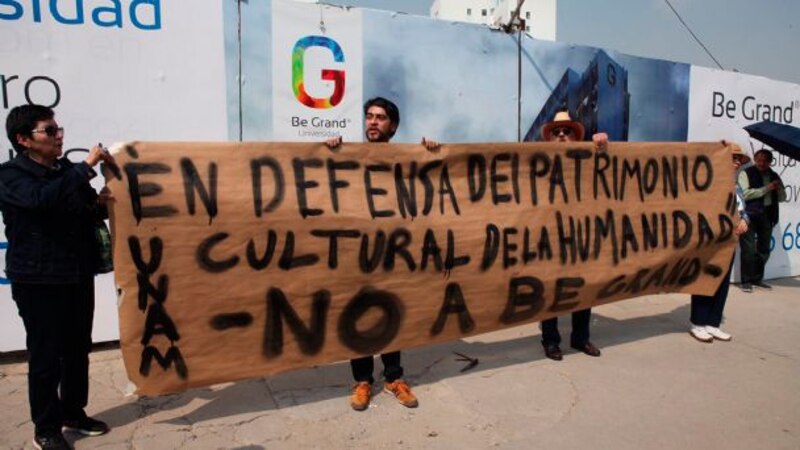 sidad
ro
G
Be Grand®
Universidad
G
Be Grand®
"EN DEFENSA DEL PATRIMONIO
CULTURAL DE LA HUMANIDAD"
- NO A BE GRAND -
UNAM